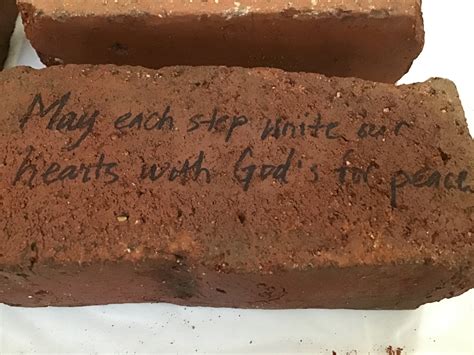 May each step unite our
hearts with God's for peace